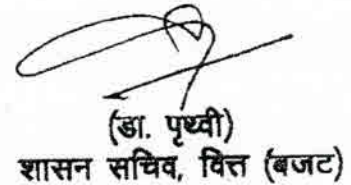 (डा. पृथ्वी)
शासन सचिव, वित्त (बजट)